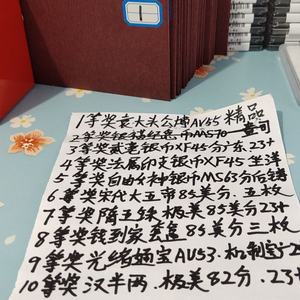 1
1等奖袁大头公博AU55 精品
2等奖银猫纪念币MS70一盖可
3等奖武龙银币XF45分广东23+
4等奖法属印支银币XF45 坐洋
5等奖自由女神银币MS63分后铸
6等奖宋代大五帝85美分.五枚
7等奖隋五铢 极美85美分23+
8等奖钱到家套盒85美分三枚
9等奖光绪 AU53.机制
10等奖 汉半两.极美82分.23+